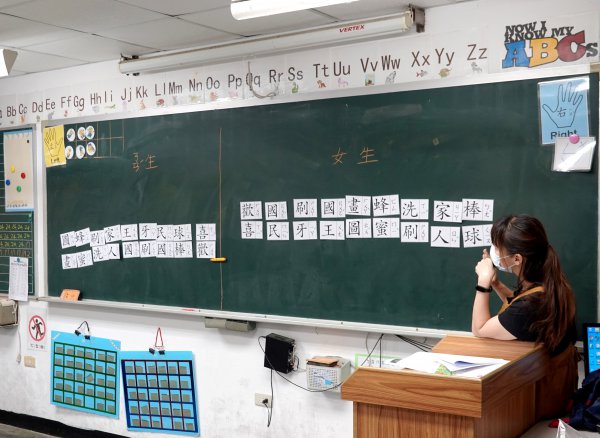 NOW I KNOW MY ABCs
VERTEX
Bb Cc Dd Ee Ff Gg Hh Ii Jj Kk Ll Mm Nn Oo Pp Qq Rr Ss Tt Uu Vv Ww Xx Yy Zz
右
Right
男生
女生
圖 蜂 刷 家 王 牙 民 球 喜
畫 蜜 洗 人 國 刷 國 棒 歡
歡 國 刷 國 畫 蜂 洗 家 棒
喜 民 牙 王 圖 蜜 刷 人 球